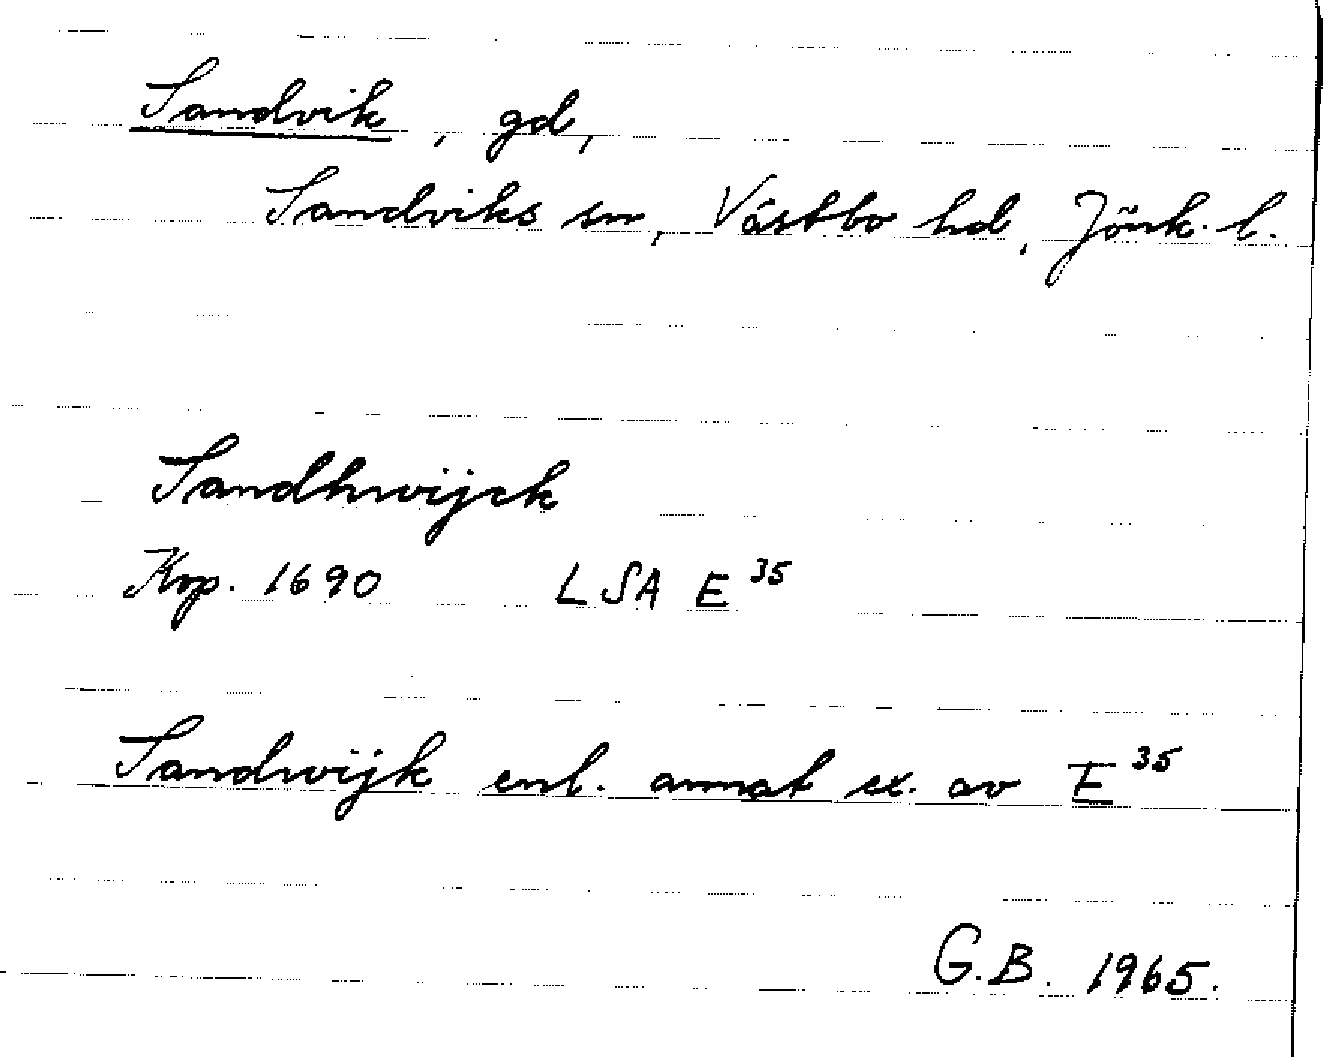 Sandvik, gd,
Sandviks sn, Västbo hd, Jönk. l.
Sandhwijck
Kop. 1690 LSA E 35
Sandwijk enl. annat ex. av E 35
G.B. 1965.